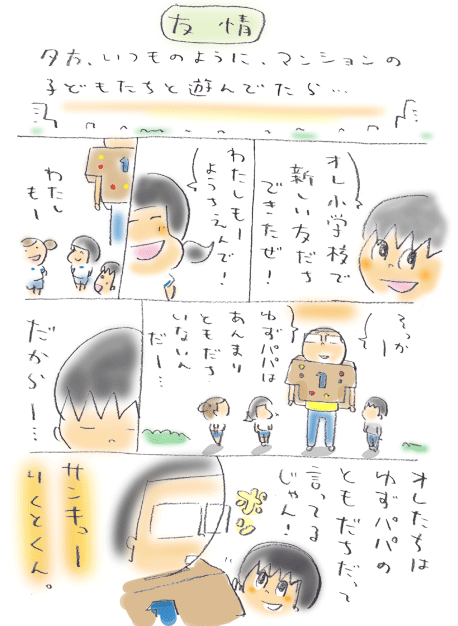 友情
夕方、いつものように、マンションの
子どもたちと遊んでたら…
オレ小学校で
新しい友だち
できたぜ!
わたしもー
ようちえんで!
わたし
もー
そっか
ー
ゆずパパは
あんまり
ともだち
いないん
だー…
だから
ー…
オレたちは
ゆずパパの
ともだちだって
言ってる
じゃん!
ポン
サンキュー
りくとくん。